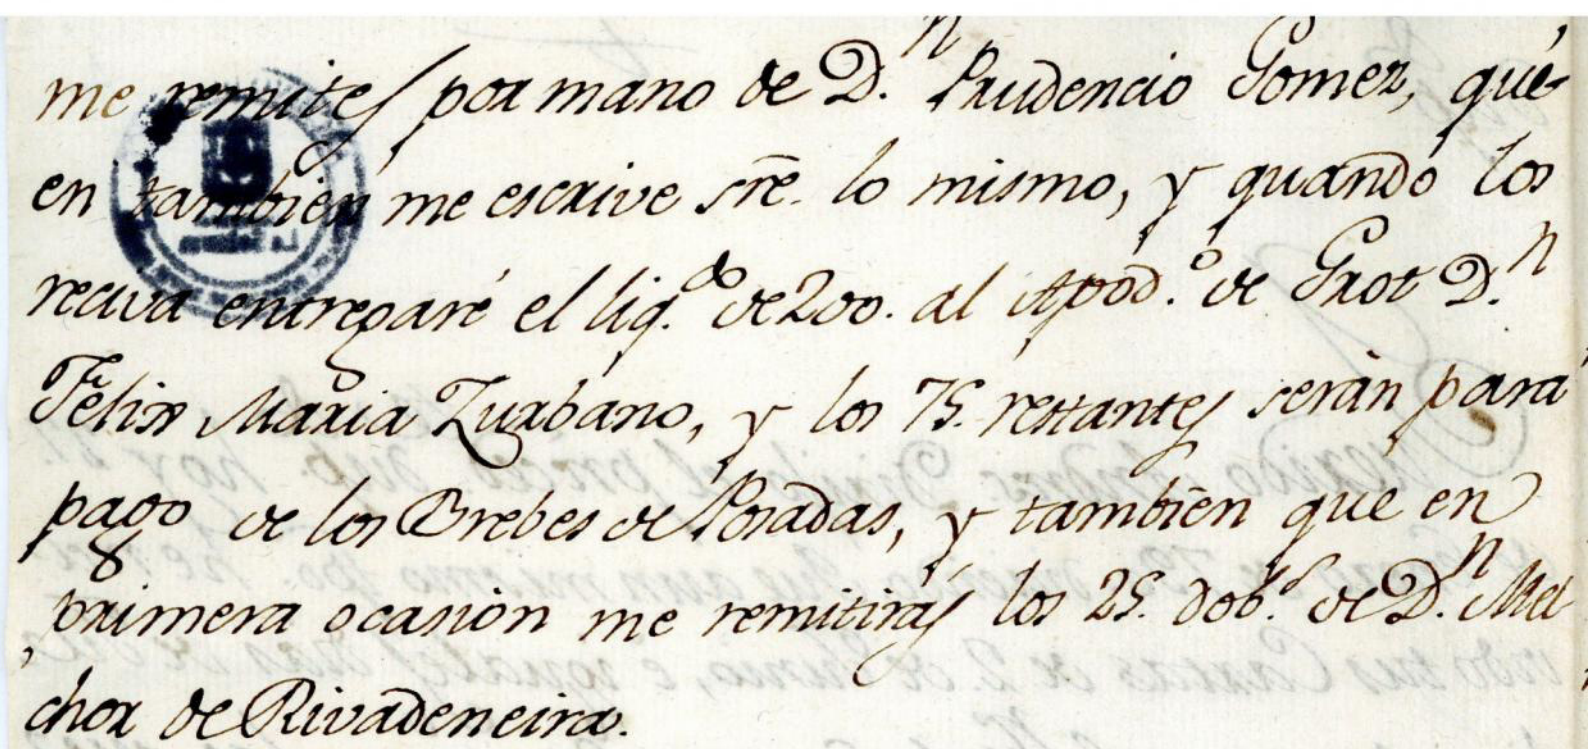 me remites por mano de D.n Prudencio Gomez, qui-
en tambien me escrive sre. lo mismo, y quando los
reciva entregaré el liq.do de 200. al Apod.o de Grot D.n
Felix Maria Zurbano, y los 75. restantes serán para
pago de los Brebes de Posadas, y tambien que en
primera ocasion me remitirás los 25. dob.s de D.n Mel
chor de Rivadeneira.